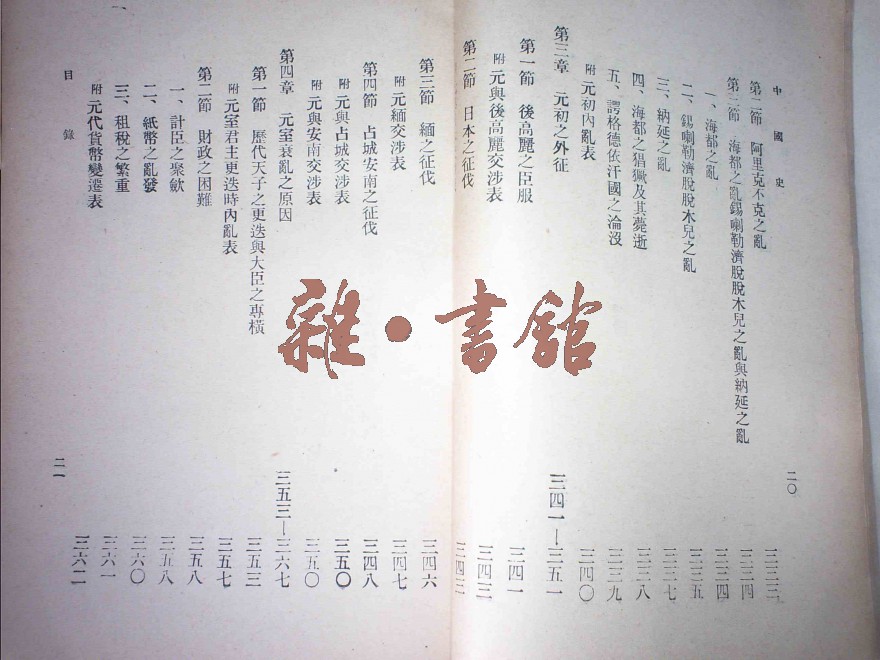 中國史
二〇
第二節 阿里克不克之亂 三三三
第三節 海都之亂錫喇勒濟脫脫木兒之亂與納延之亂 三三四
一、海都之亂 三三四
二、錫喇勒濟脫脫木兒之亂 三三五
三、納延之亂 三三七
四、海都之猖獗及其薨逝 三三八
五、諤格德依汗國之淪沒 三三九
附 元初內亂表 三四〇
第三章 元初之外征 三四一—三五一
第一節 後高麗之臣服 三四一
附 元與後高麗交涉表 三四三
第二節 日本之征伐 三四三
第三節 緬之征伐 三四六
附 元緬交涉表 三四七
第四節 占城安南之征伐 三四八
附 元與占城交涉表 三五〇
附 元與安南交涉表 三五〇
第四章 元室衰亂之原因 三五三—三六七
第一節 歷代天子之更迭與大臣之專橫 三五三
附 元室君主更迭時內亂表 三五七
第二節 財政之困難 三五八
一、計臣之聚歛 三五八
二、紙幣之亂發 三六〇
三、租稅之繁重 三六一
附 元代貨幣變遷表 三六二
目錄
二一
雜·書館